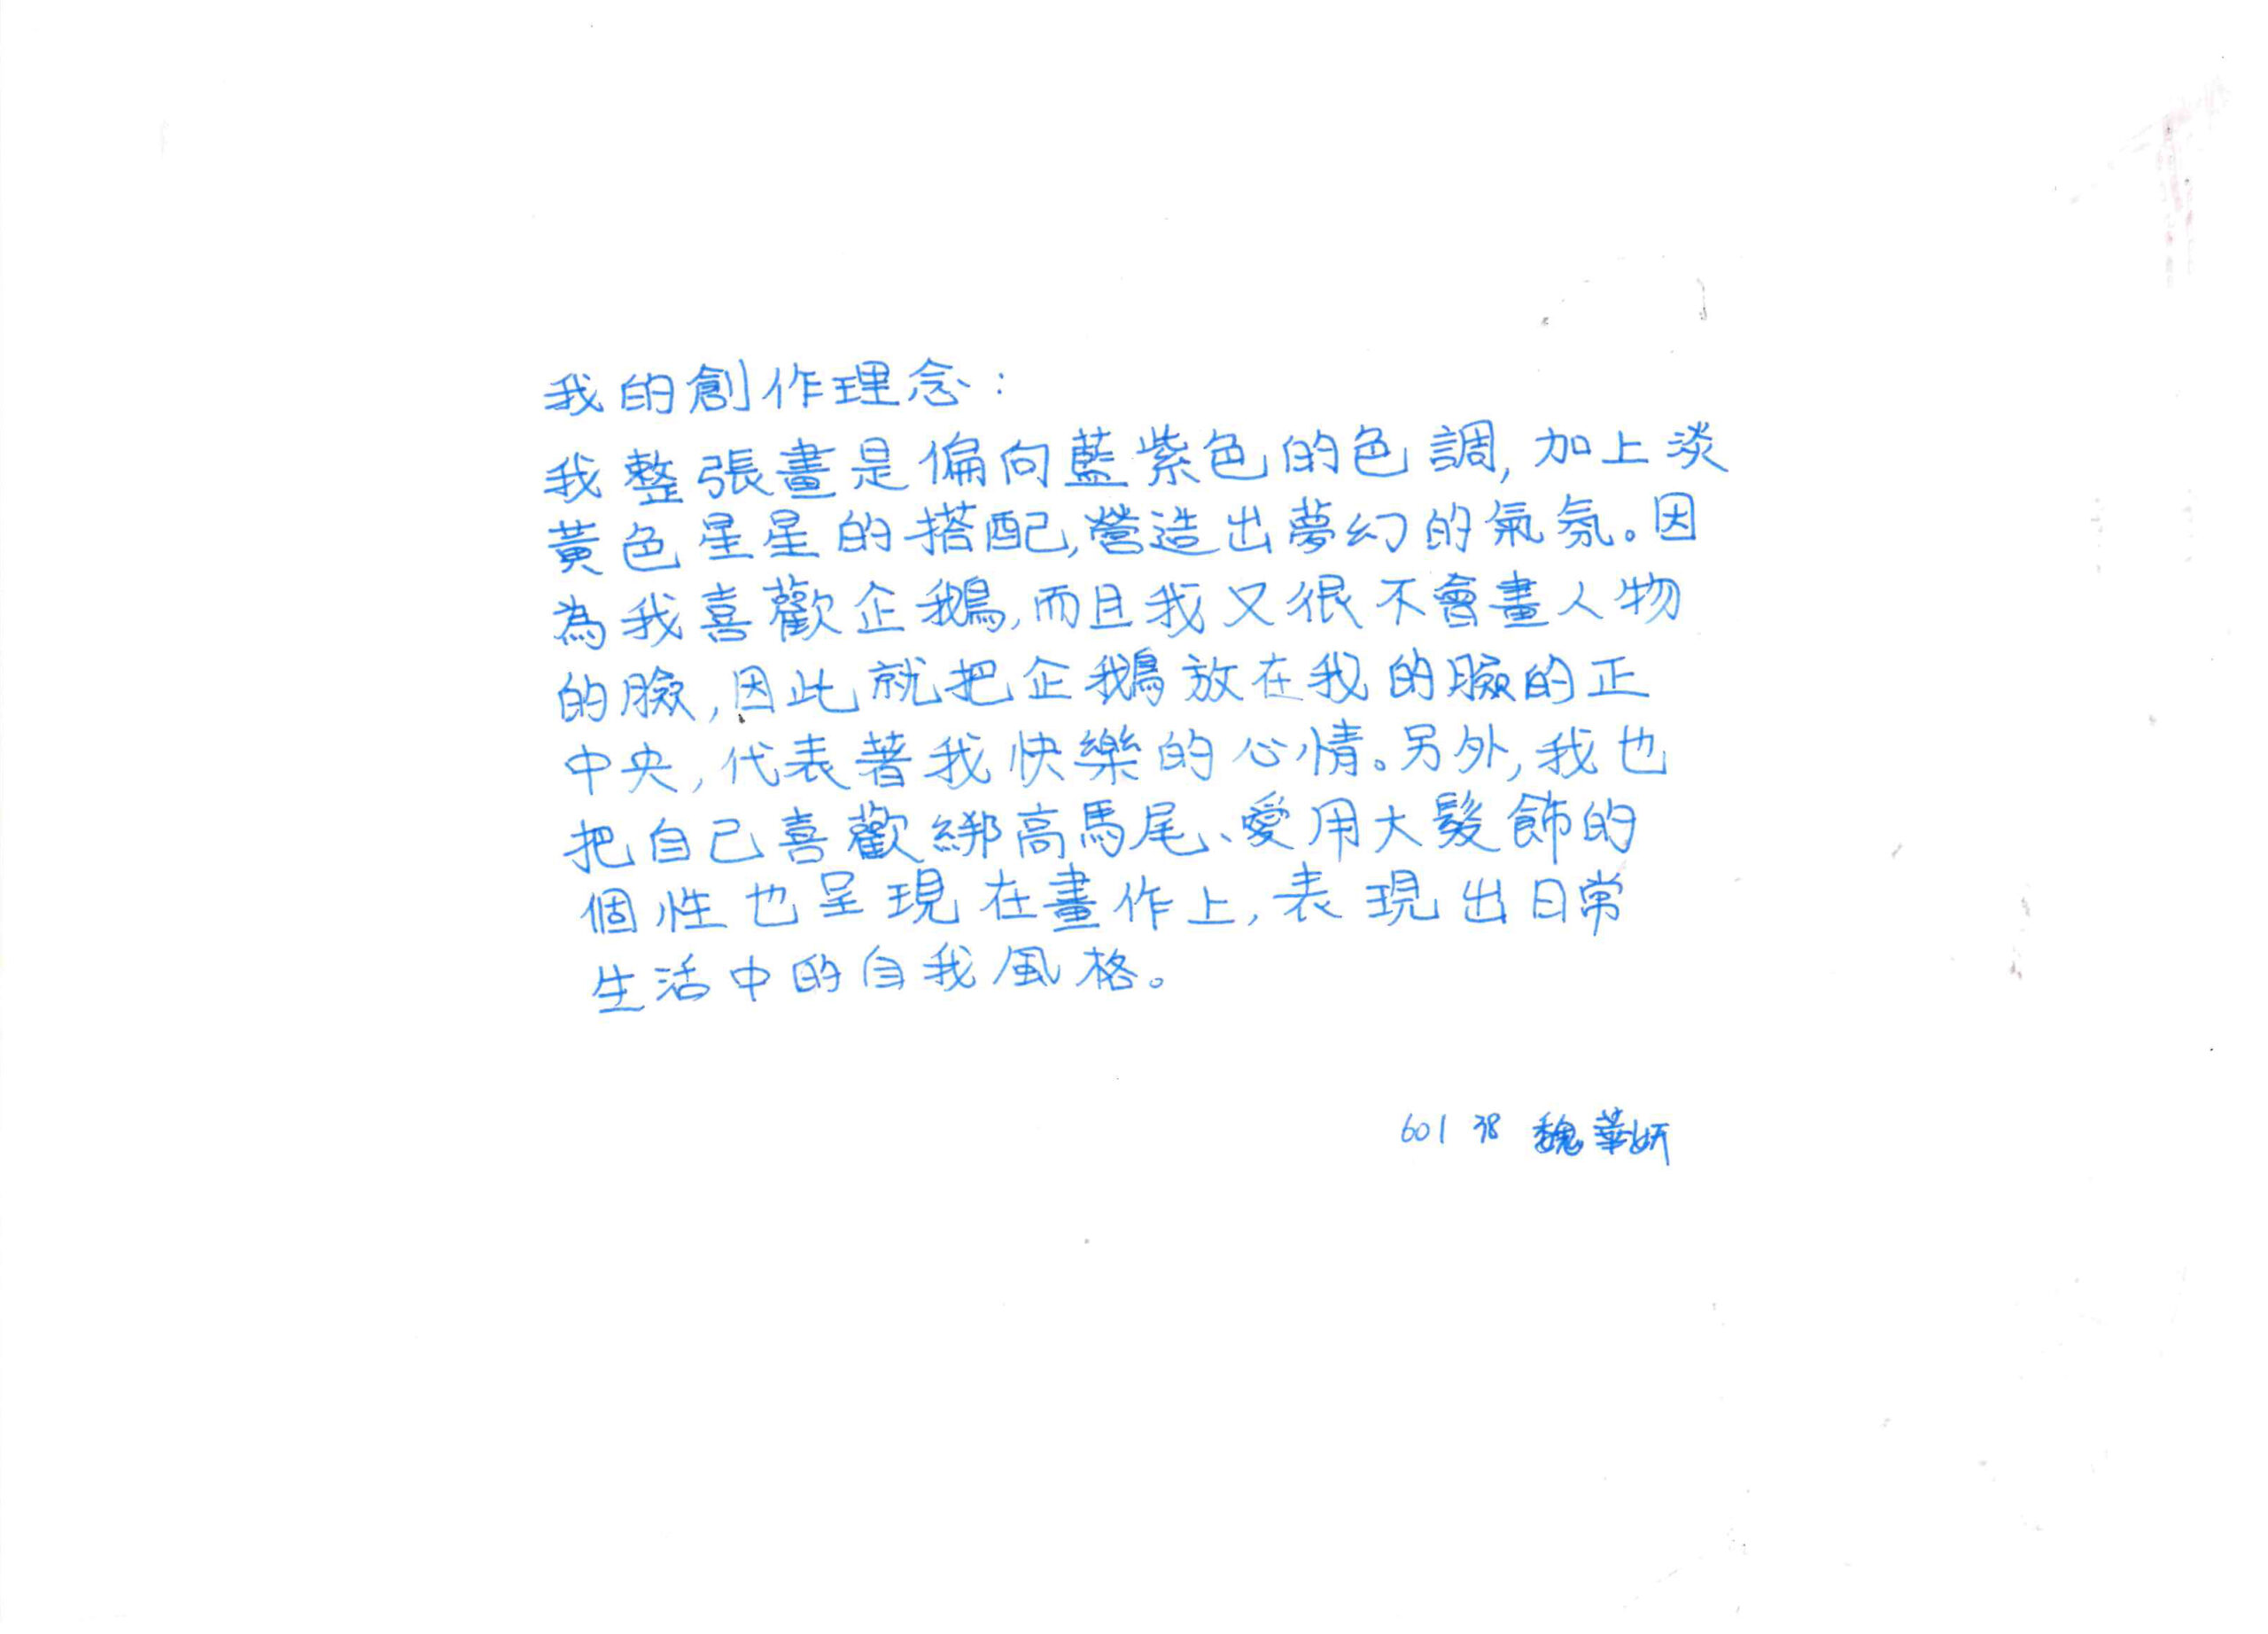 我的創作理念：
我整張畫是偏向藍紫色的色調，加上淡
黃色星星的搭配，營造出夢幻的氣氛。因
為我喜歡企鵝，而且我又很不會畫人物
的臉，因此就把企鵝放在我的臉的正
中央，代表著我快樂的心情。另外，我也
把自己喜歡綁高馬尾、愛用大髮飾的
個性也呈現在畫作上，表現出日常
生活中的自我風格。
601 38 魏華妍